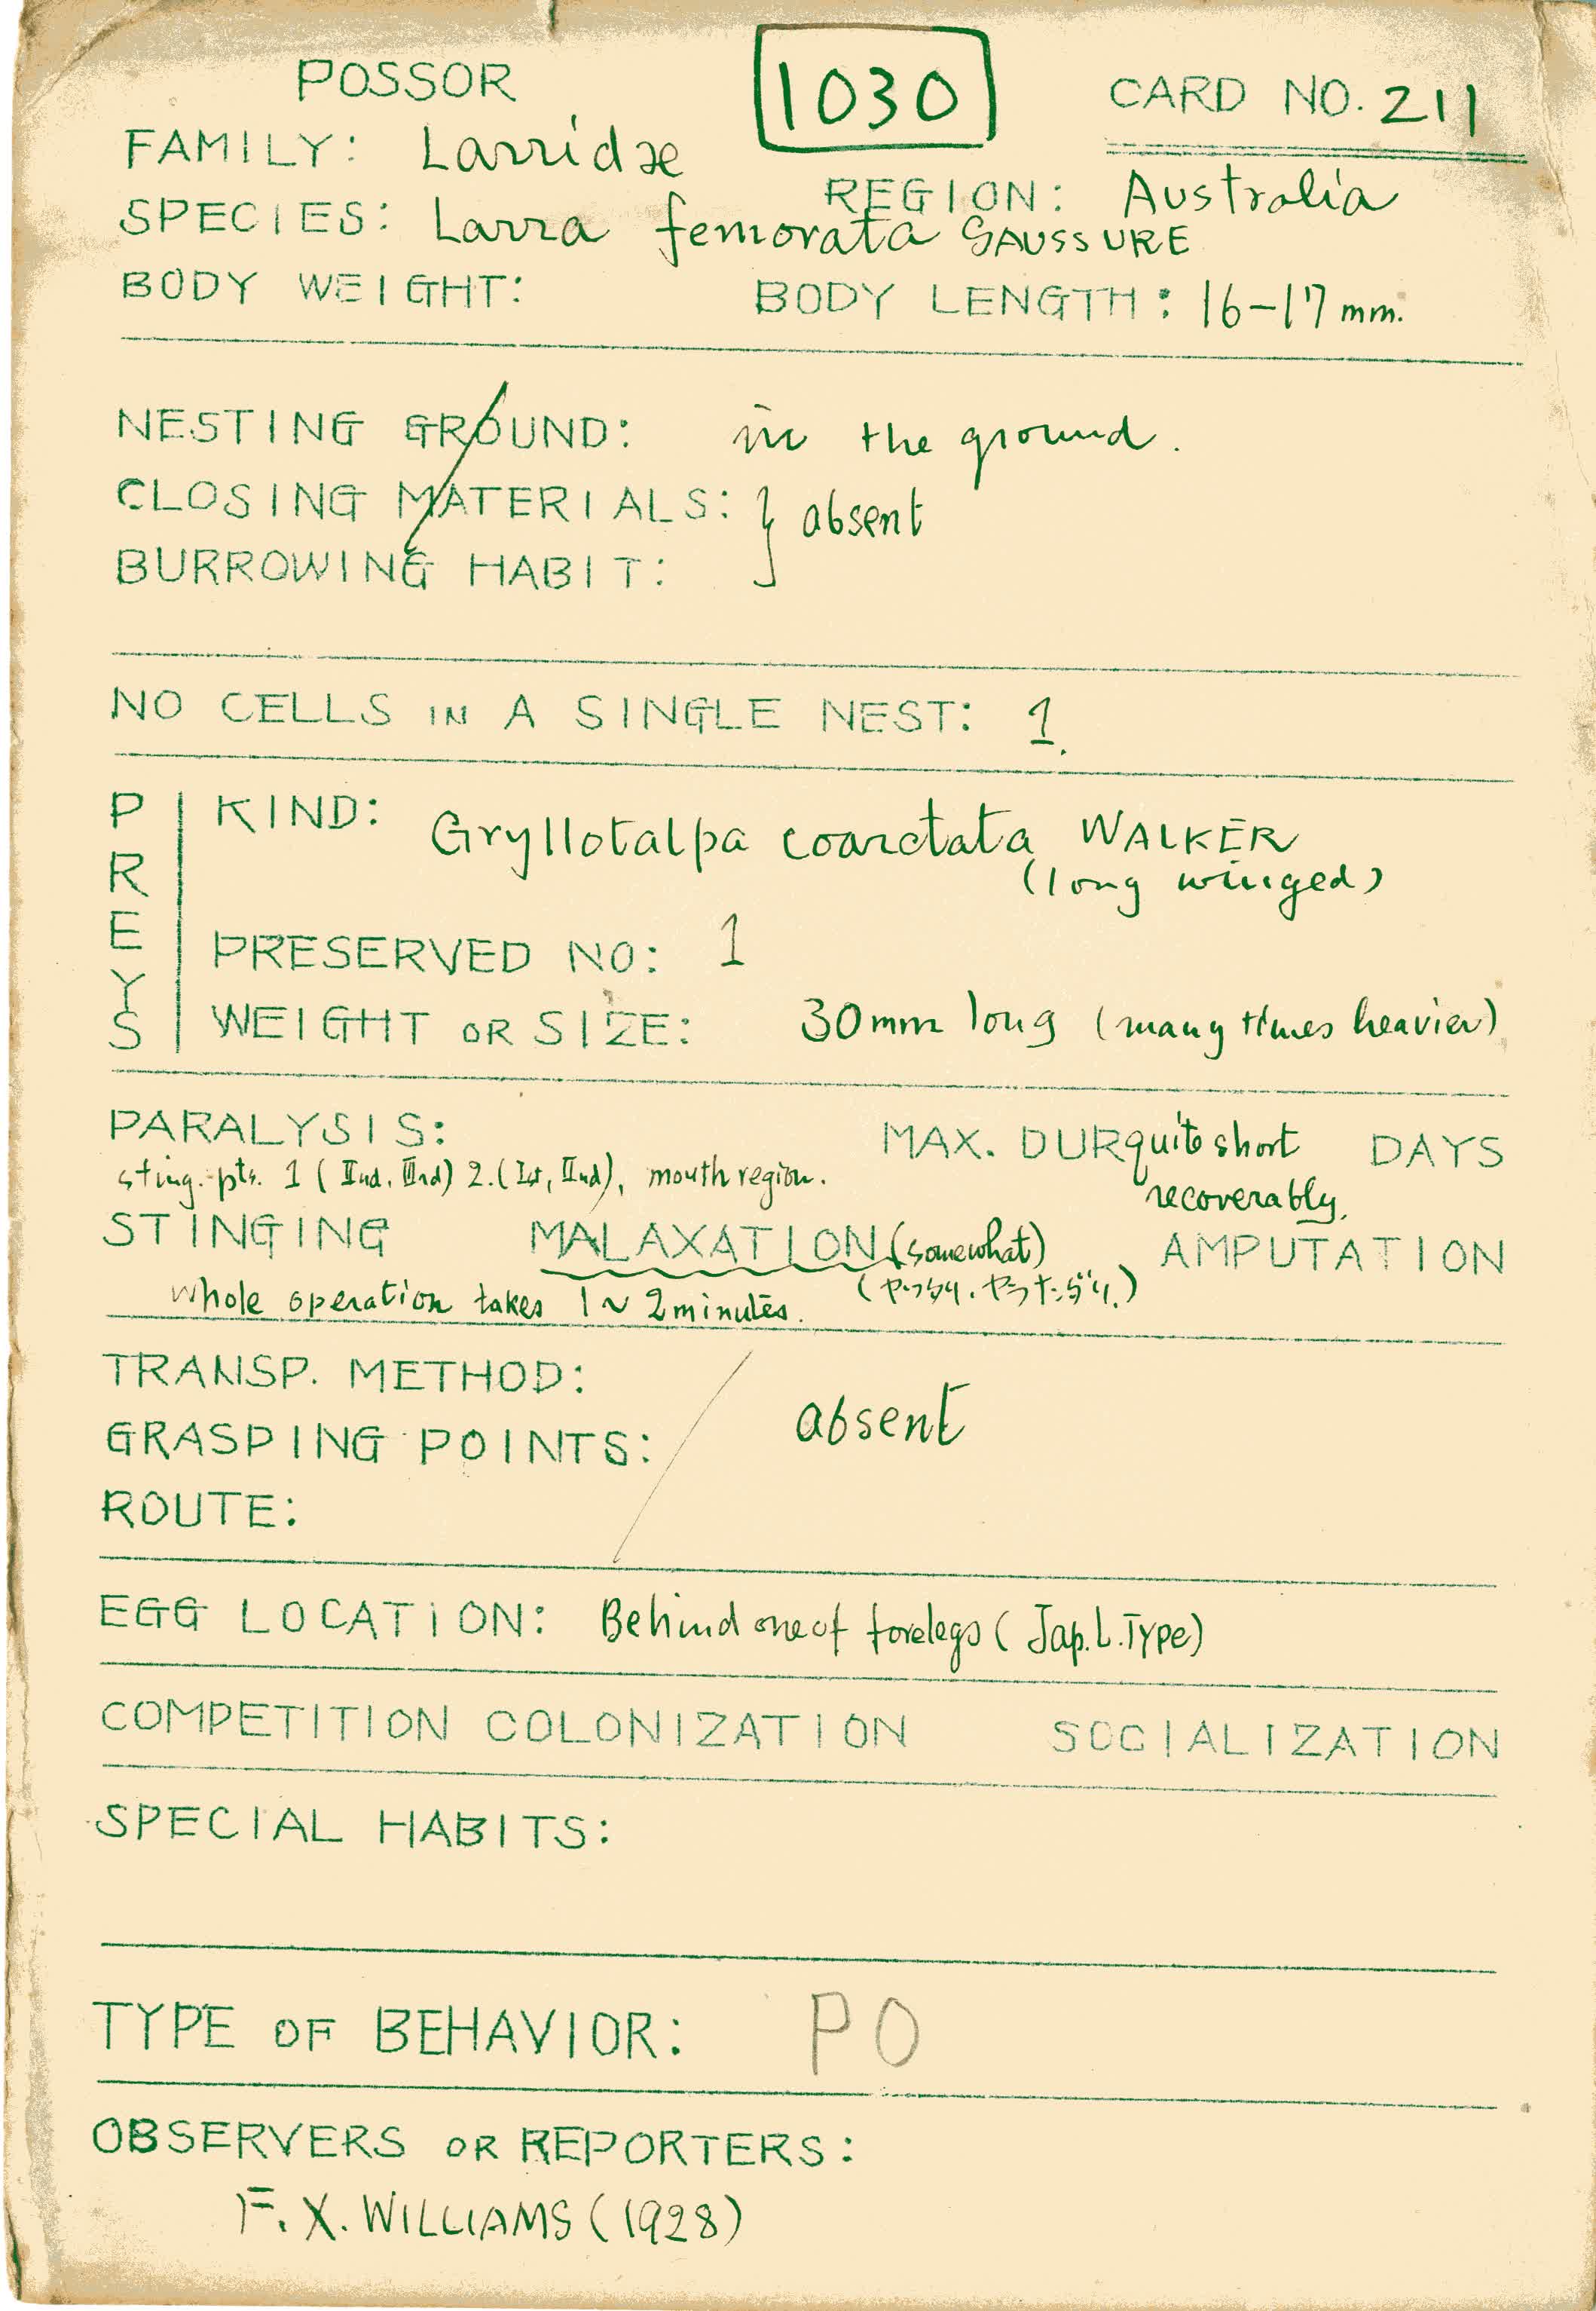 POSSOR
1030
CARD NO. 211
FAMILY: Larridæ
REGION: Australia
SPECIES: Larra femorata SAUSSURE
BODY WEIGHT: BODY LENGTH: 16-17 mm.
NESTING GROUND: in the ground.
CLOSING MATERIALS: } absent
BURROWING HABIT:
NO CELLS IN A SINGLE NEST: 1.
PREYS
KIND: Gryllotalpa coarctata WALKER
(long winged)
PRESERVED NO: 1
WEIGHT OR SIZE: 30mm long (many times heavier)
PARALYSIS: MAX. DUR quite short DAYS
sting. pts. 1 (IInd, IIIrd) 2. (Ist, IInd), mouth region.
recoverably.
STINGING MALAXATION (somewhat) AMPUTATION
whole operation takes 1~2 minutes.
TRANSP. METHOD:
absent
GRASPING POINTS:
ROUTE:
EGG LOCATION: Behind one of forelegs (Jap. L. Type)
COMPETITION COLONIZATION SOCIALIZATION
SPECIAL HABITS:
TYPE OF BEHAVIOR: PO
OBSERVERS OR REPORTERS:
F. X. WILLIAMS (1928)